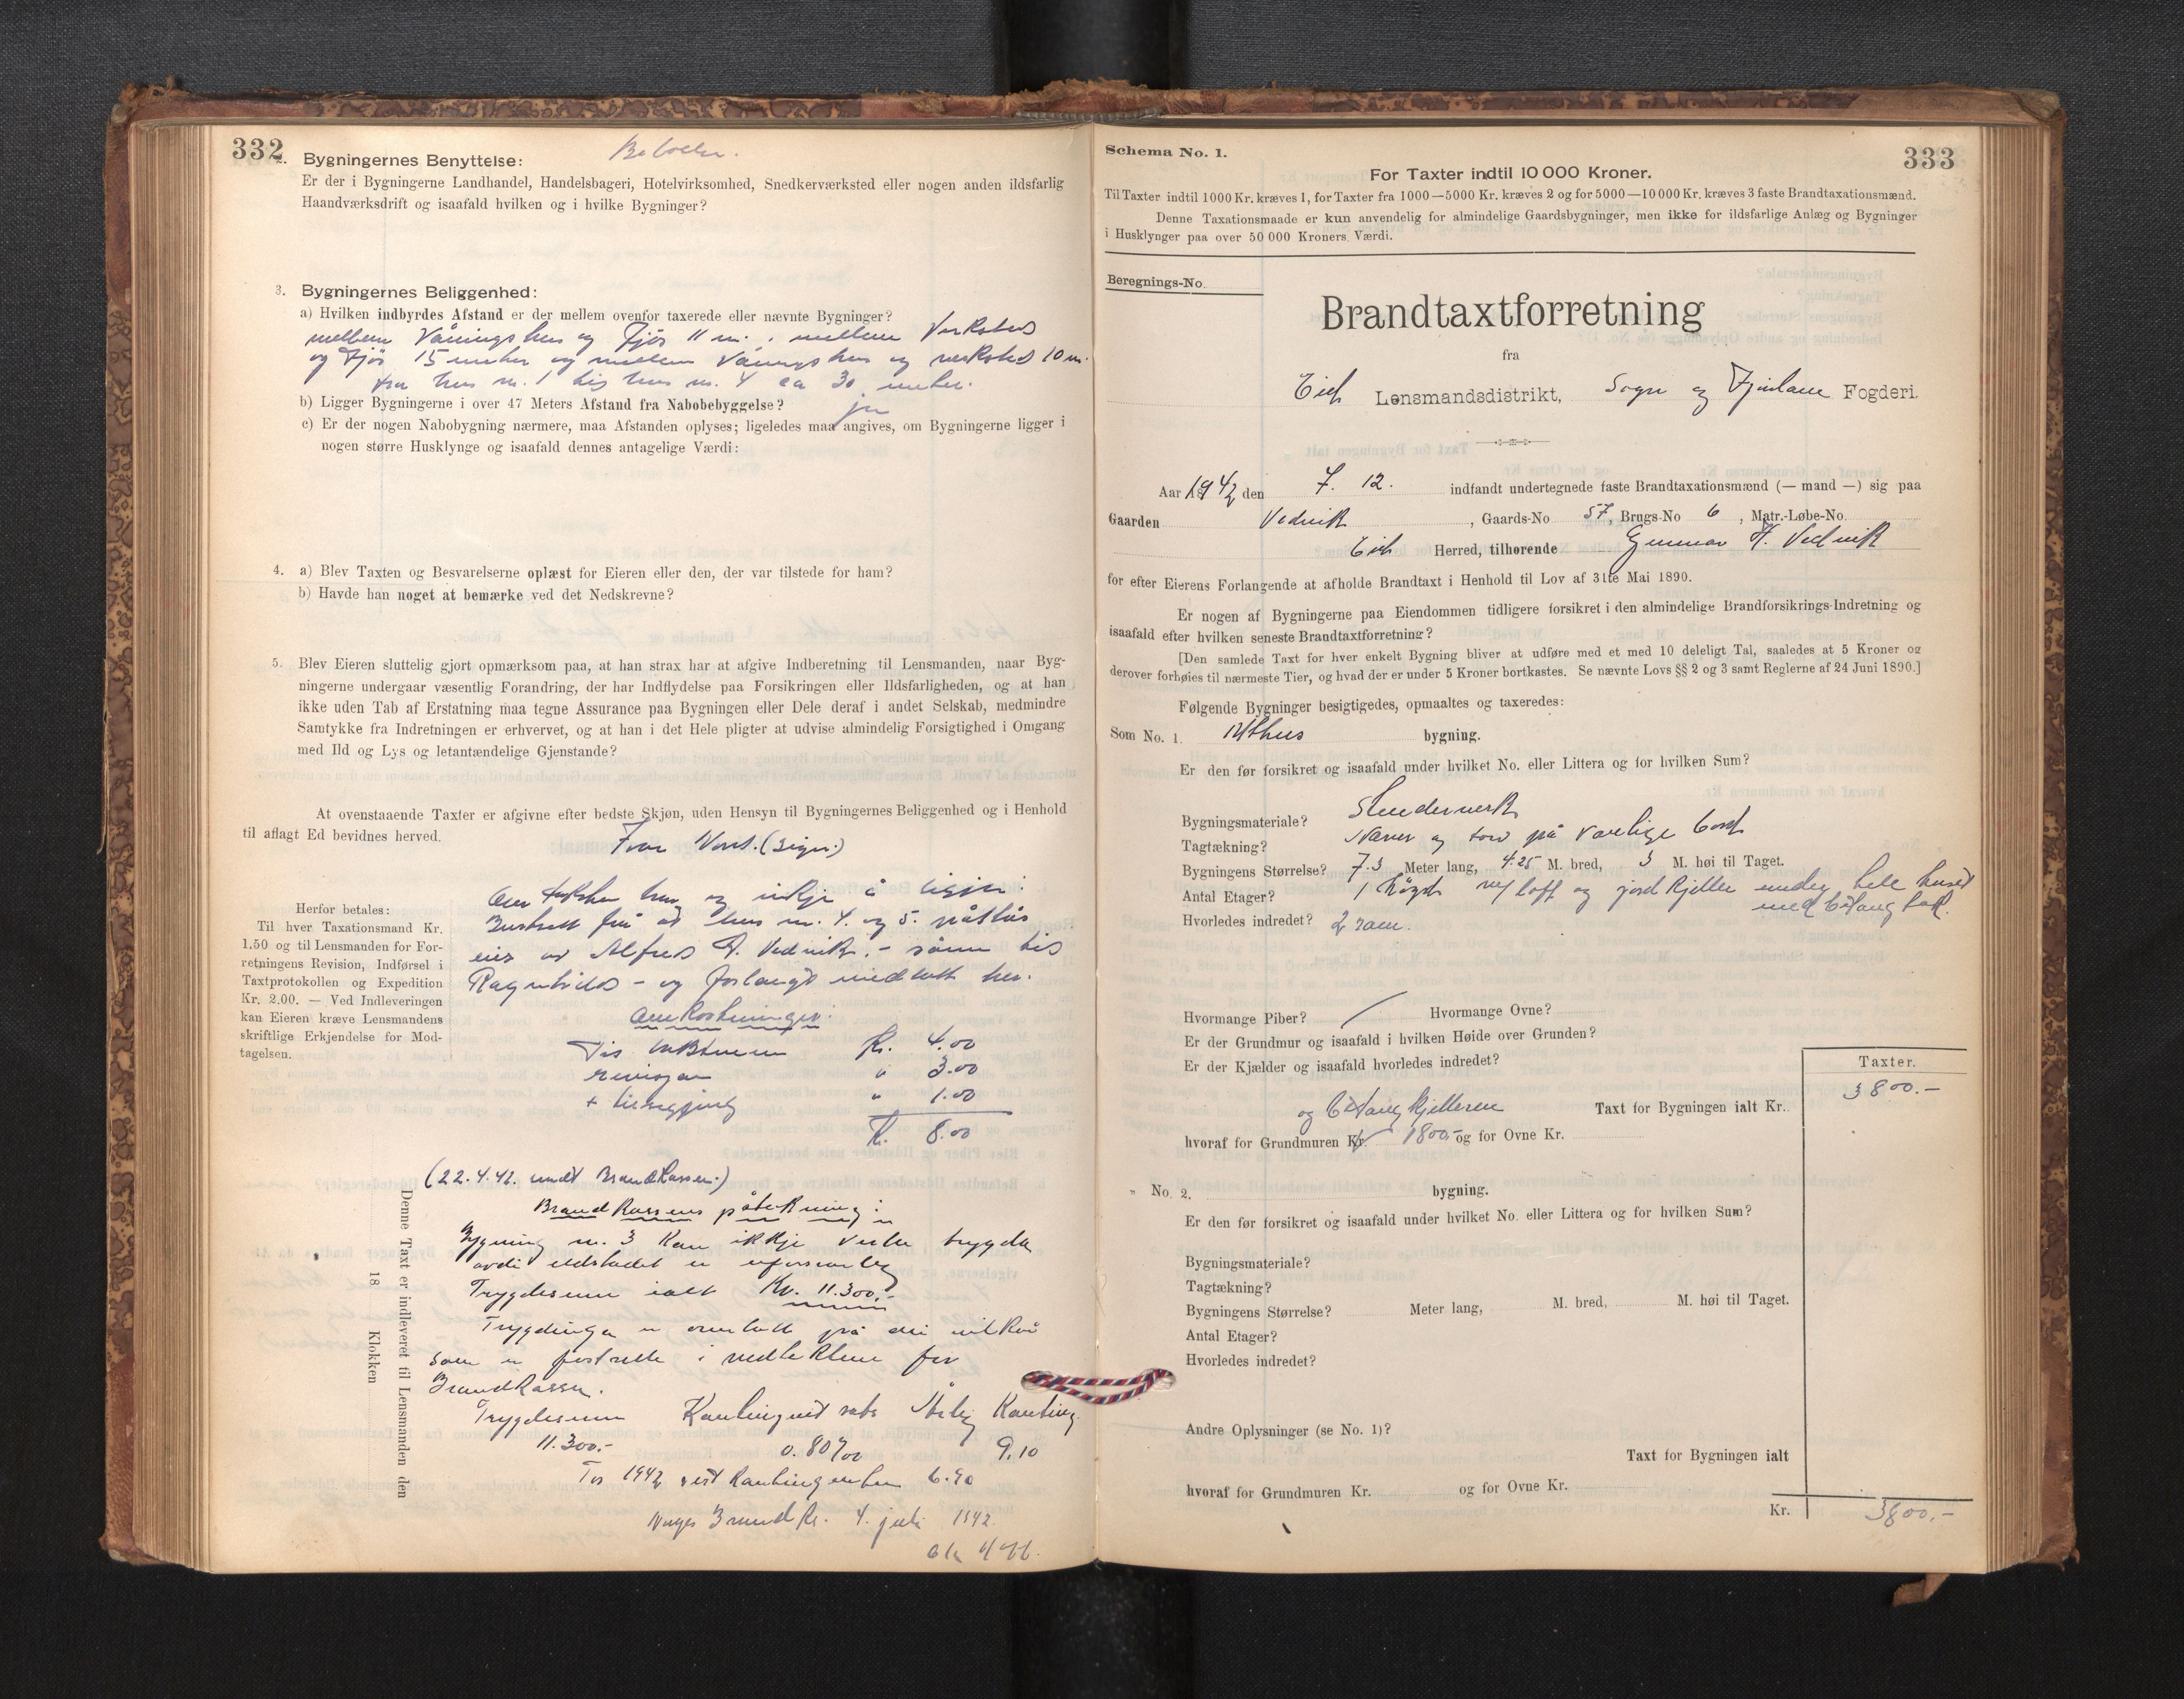 332
2. Bygningernes Benyttelse: Beboelse.
Er der i Bygningerne Landhandel, Handelsbageri, Hotelvirksomhed, Snedkerværksted eller nogen anden ildsfarlig
Haandværksdrift og isaafald hvilken og i hvilke Bygninger?
3. Bygningernes Beliggenhed:
a) Hvilken indbyrdes Afstand er der mellem ovenfor taxerede eller nævnte Bygninger?
mellem Våningshus og Fjøs 11 m., mellem Verksted
og Fjøs 15 meter og mellem Våningshus og verksted 10 m.
fra hus nr. 1 til hus nr. 4 ca 30 meter.
b) Ligger Bygningerne i over 47 Meters Afstand fra Nabobebyggelse? ja
c) Er der nogen Nabobygning nærmere, maa Afstanden oplyses; ligeledes maa angives, om Bygningerne ligger i
nogen større Husklynge og isaafald dennes antagelige Værdi:
4. a) Blev Taxten og Besvarelserne oplæst for Eieren eller den, der var tilstede for ham?
b) Havde han noget at bemærke ved det Nedskrevne?
5. Blev Eieren sluttelig gjort opmærksom paa, at han strax har at afgive Indberetning til Lensmanden, naar Byg-
ningerne undergaar væsentlig Forandring, der har Indflydelse paa Forsikringen eller Ildsfarligheden, og at han
ikke uden Tab af Erstatning maa tegne Assurance paa Bygningen eller Dele deraf i andet Selskab, medmindre
Samtykke fra Indretningen er erhvervet, og at han i det Hele pligter at udvise almindelig Forsigtighed i Omgang
med Ild og Lys og letantændelige Gjenstande?
At ovenstaaende Taxter er afgivne efter bedste Skjøn, uden Hensyn til Bygningernes Beliggenhed og i Henhold
til aflagt Ed bevidnes herved.
(sign.)
Herfor betales:
Til hver Taxationsmand Kr.
1.50 og til Lensmanden for For-
retningens Revision, Indførsel i
Taxtprotokollen og Expedition
Kr. 2.00. — Ved Indleveringen
kan Eieren kræve Lensmandens
skriftlige Erkjendelse for Mod-
tagelsen.
Om taksten har eg inkje å segja:
Burtsett frå at hus nr. 4. og 5. påstås
eies av Alfred A. Vedvik. - sønn til
Ragnhild - og forlangt medtatt her.
Omkostninger:
Til takstmenn Kr. 4.00
revisjon " 3.00
+ " 1.00
Kr. 8.00
(22.4.42. sendt Brandkassen.)
Brandkassens påtekning:
Bygning nr. 3 kan ikkje verta trygda
avdi eldstadet er uforsvarleg
Trygdesum ialt Kr. 11.300.-
Trygdinga er overtatt på dei vilkår
som er fastsette i vedtektene for
Brandkassen.
Trygdesum Kontingentsats Årleg Konting.
11.300.- 0.80 ‰ 9.10
For 1942 vert kontingenten 6.90
Norges Brandk. 4. juli 1942.
Denne Taxt er indleveret til Lensmanden den
18 Klokken
333
Schema No. 1.
For Taxter indtil 10 000 Kroner.
Til Taxter indtil 1000 Kr. kræves 1, for Taxter fra 1000—5000 Kr. kræves 2 og for 5000—10 000 Kr. kræves 3 faste Brandtaxationsmænd.
Denne Taxationsmaade er kun anvendelig for almindelige Gaardsbygninger, men ikke for ildsfarlige Anlæg og Bygninger
i Husklynger paa over 50 000 Kroners Værdi.
Beregnings-No.
Brandtaxtforretning
fra
Eid Lensmandsdistrikt, Sogn og Fjordane Fogderi.
Aar 1942 den 7. 12. indfandt undertegnede faste Brandtaxationsmænd (— mand —) sig paa
Gaarden Vedvik, Gaards-No 57, Brugs-No 6, Matr.-Løbe-No.
Eid Herred, tilhørende Gunnar H. Vedvik
for efter Eierens Forlangende at afholde Brandtaxt i Henhold til Lov af 31te Mai 1890.
Er nogen af Bygningerne paa Eiendommen tidligere forsikret i den almindelige Brandforsikrings-Indretning og
isaafald efter hvilken seneste Brandtaxtforretning?
[Den samlede Taxt for hver enkelt Bygning bliver at udføre med et med 10 deleligt Tal, saaledes at 5 Kroner og
derover forhøies til nærmeste Tier, og hvad der er under 5 Kroner bortkastes. Se nævnte Lovs §§ 2 og 3 samt Reglerne af 24 Juni 1890.]
Følgende Bygninger besigtigedes, opmaaltes og taxeredes:
Som No. 1. Uthus bygning.
Er den før forsikret og isaafald under hvilket No. eller Littera og for hvilken Sum?
Bygningsmateriale? Stenderverk
Tagtækning? Never og torv på vanlige bord
Bygningens Størrelse? 7.3 Meter lang, 4.25 M. bred, 3 M. høi til Taget.
Antal Etager? 1 høgd m/ loft og jordkjeller under hele huset
med betong tak.
Hvorledes indredet? 2 rom.
Hvormange Piber? Hvormange Ovne?
Er der Grundmur og isaafald i hvilken Høide over Grunden?
Er der Kjælder og isaafald hvorledes indredet?
Taxter.
og betong kjelleren Taxt for Bygningen ialt Kr. 3800.-
hvoraf for Grundmuren Kr. 1800.- og for Ovne Kr.
" No. 2. bygning.
Er den før forsikret og isaafald under hvilket No. eller Littera og for hvilken Sum?
Bygningsmateriale?
Tagtækning?
Bygningens Størrelse? Meter lang, M. bred, M. høi til Taget.
Antal Etager?
Hvorledes indredet?
Andre Oplysninger (se No. 1)?
Taxt for Bygningen ialt
hvoraf for Grundmuren Kr. og for Ovne Kr.
Kr. 3800.-